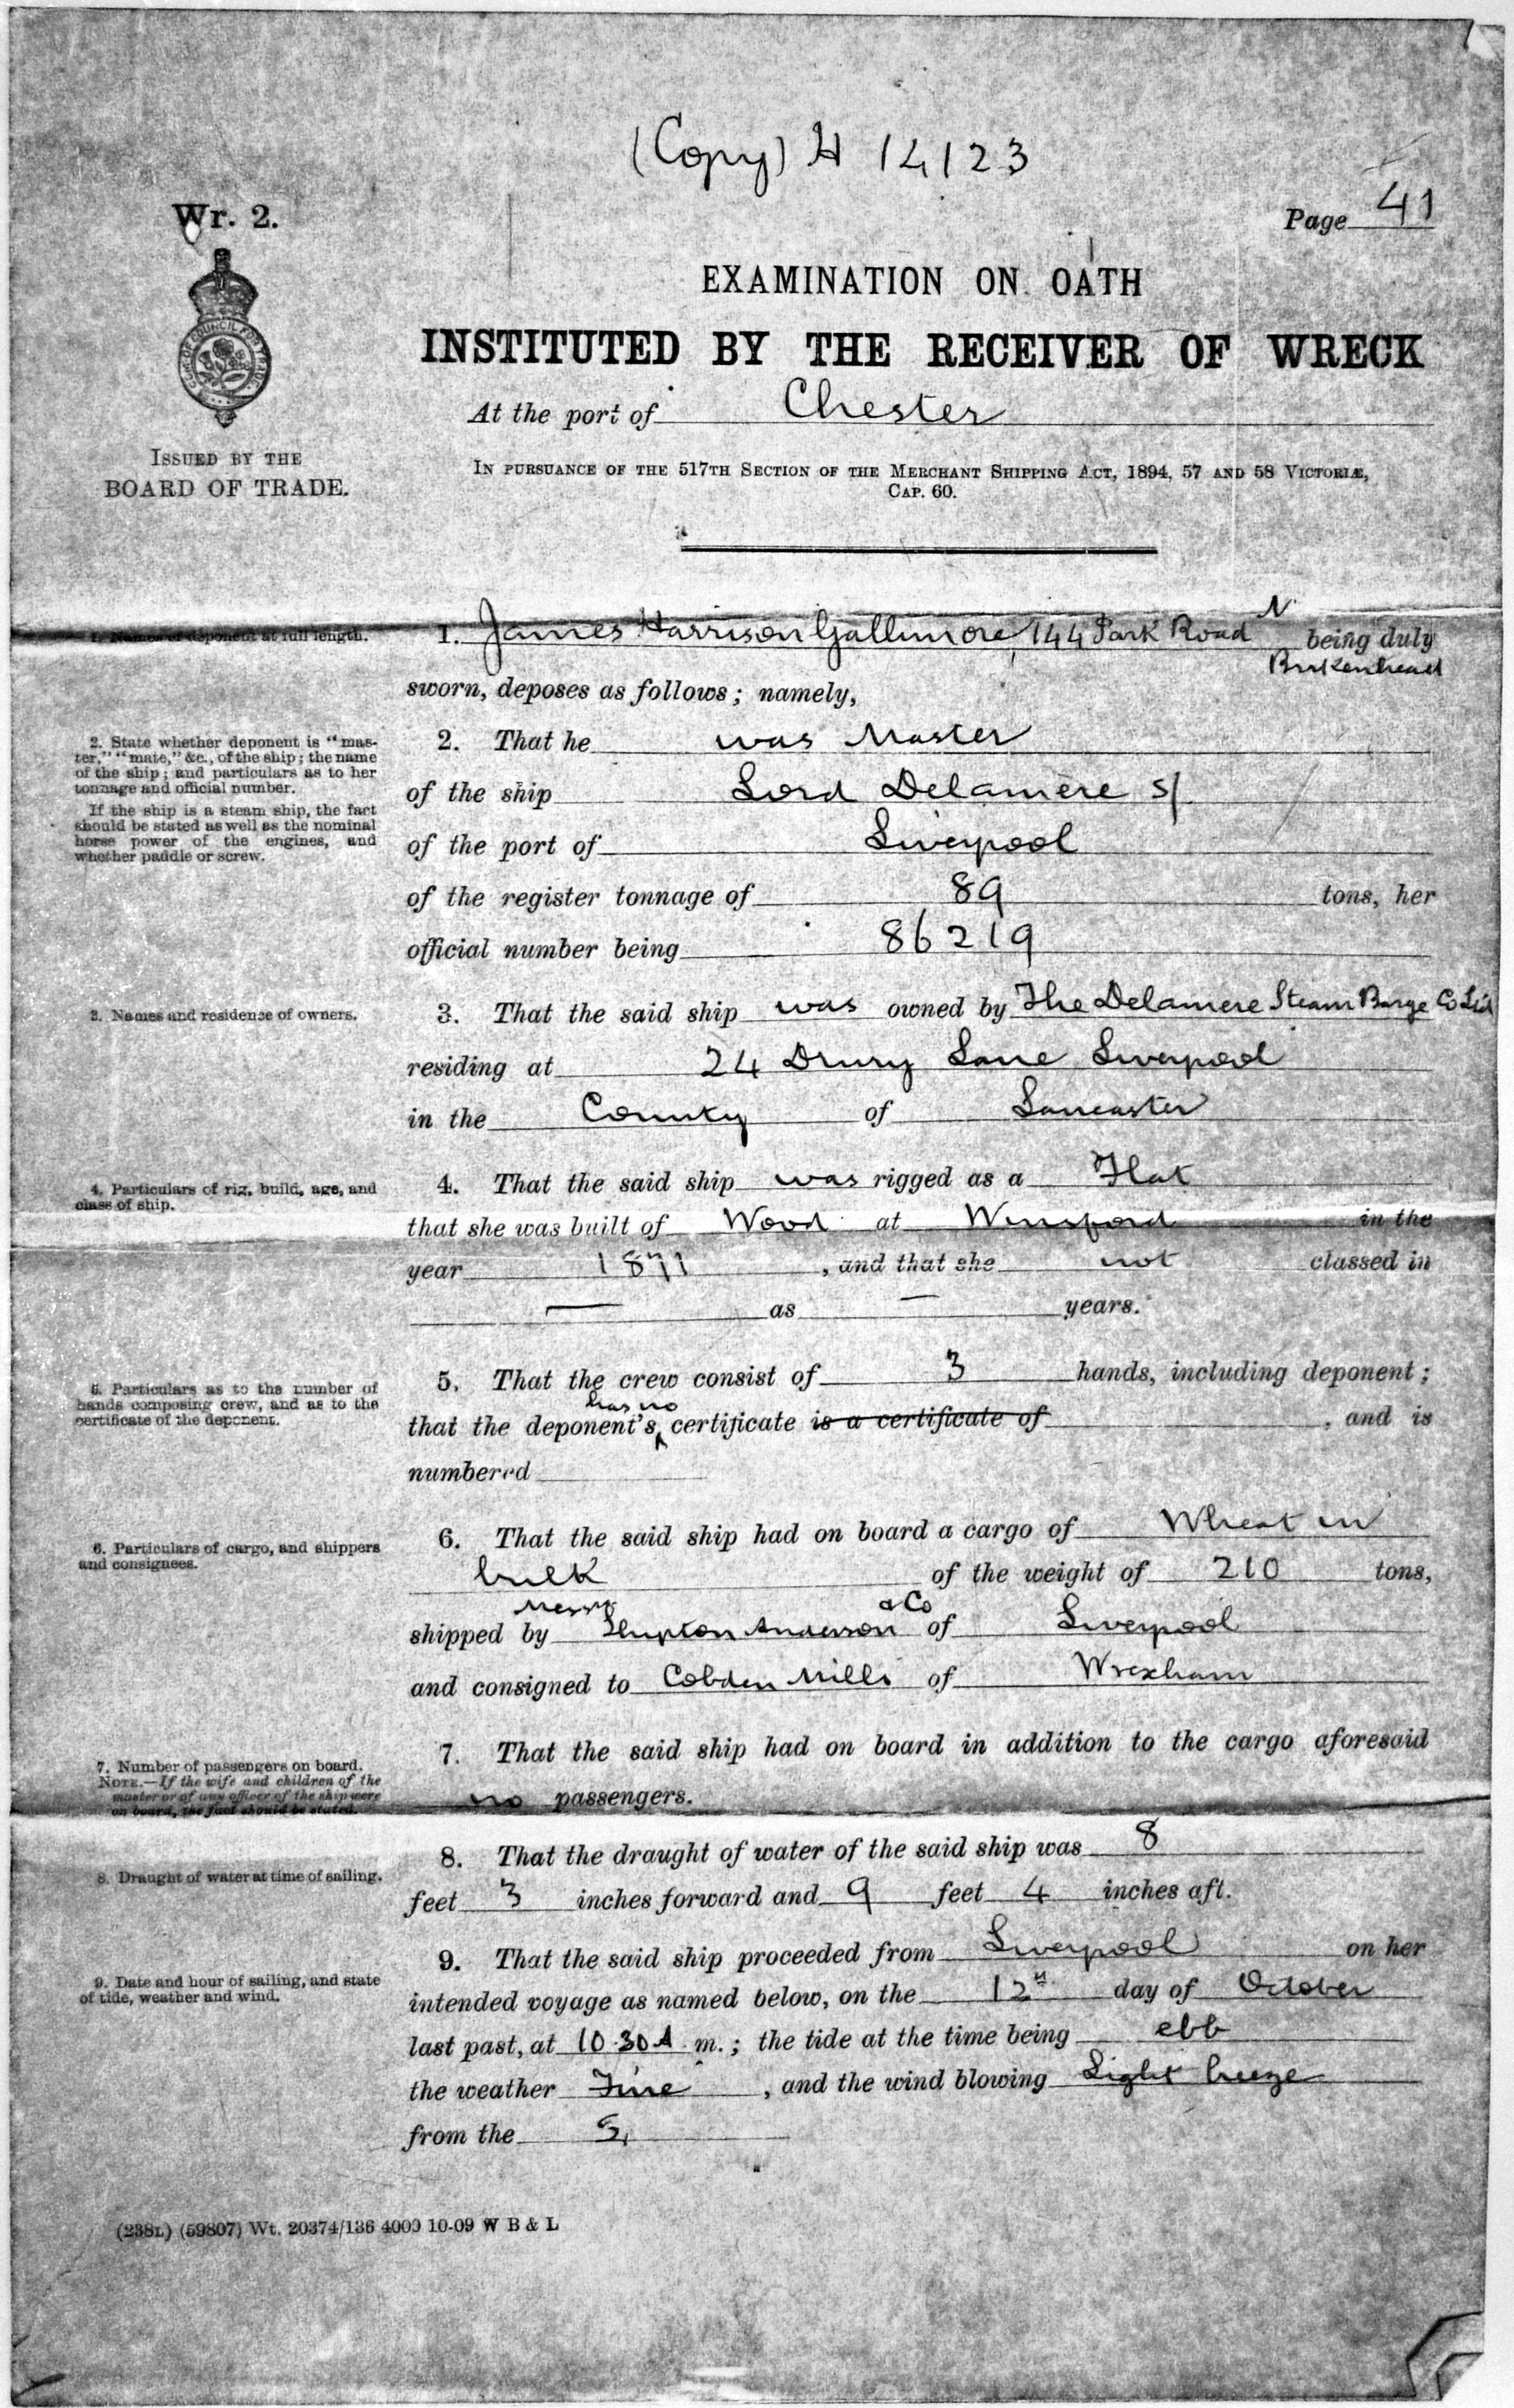 (Copy) H 14123
Wr. 2.
Page 41
EXAMINATION ON OATH
INSTITUTED BY THE RECEIVER OF WRECK
At the port of Chester
ISSUED BY THE
BOARD OF TRADE.
IN PURSUANCE OF THE 517TH SECTION OF THE MERCHANT SHIPPING ACT, 1894, 57 AND 58 VICTORIÆ,
CAP. 60.
1. Names of deponent at full length.
1. James Harrison Gallimore, 144 Park Road N. being duly
Birkenhead
sworn, deposes as follows; namely,
2. State whether deponent is "mas-
ter," "mate," &c., of the ship; the name
of the ship; and particulars as to her
tonnage and official number.
If the ship is a steam ship, the fact
should be stated as well as the nominal
horse power of the engines, and
whether paddle or screw.
2. That he was Master
of the ship Lord Delamere S/
of the port of Liverpool
of the register tonnage of 89 tons, her
official number being 86219
3. Names and residence of owners.
3. That the said ship was owned by The Delamere Steam Barge Co Ltd
residing at 24 Drury Lane Liverpool
in the County of Lancaster
4. Particulars of rig, build, age, and
class of ship.
4. That the said ship was rigged as a Flat
that she was built of Wood at Winsford in the
year 1871, and that she not classed in
— as — years.
5. Particulars as to the number of
hands composing crew, and as to the
certificate of the deponent.
5. That the crew consist of 3 hands, including deponent;
has no
that the deponent's certificate is a certificate of , and is
numbered
6. Particulars of cargo, and shippers
and consignees.
6. That the said ship had on board a cargo of Wheat in
bulk of the weight of 210 tons,
Messrs & Co
shipped by Shipton Anderson of Liverpool
and consigned to Cobden Mills of Wrexham
7. Number of passengers on board.
NOTE.—If the wife and children of the
master or of any officer of the ship were
on board, the fact should be stated.
7. That the said ship had on board in addition to the cargo aforesaid
no passengers.
8. Draught of water at time of sailing.
8. That the draught of water of the said ship was 8
feet 3 inches forward and 9 feet 4 inches aft.
9. Date and hour of sailing, and state
of tide, weather and wind.
9. That the said ship proceeded from Liverpool on her
intended voyage as named below, on the 12th day of October
last past, at 10.30 A. m.; the tide at the time being ebb
the weather Fine, and the wind blowing Light breeze
from the S.
(238L) (59807) Wt. 20374/136 4000 10-09 W B & L